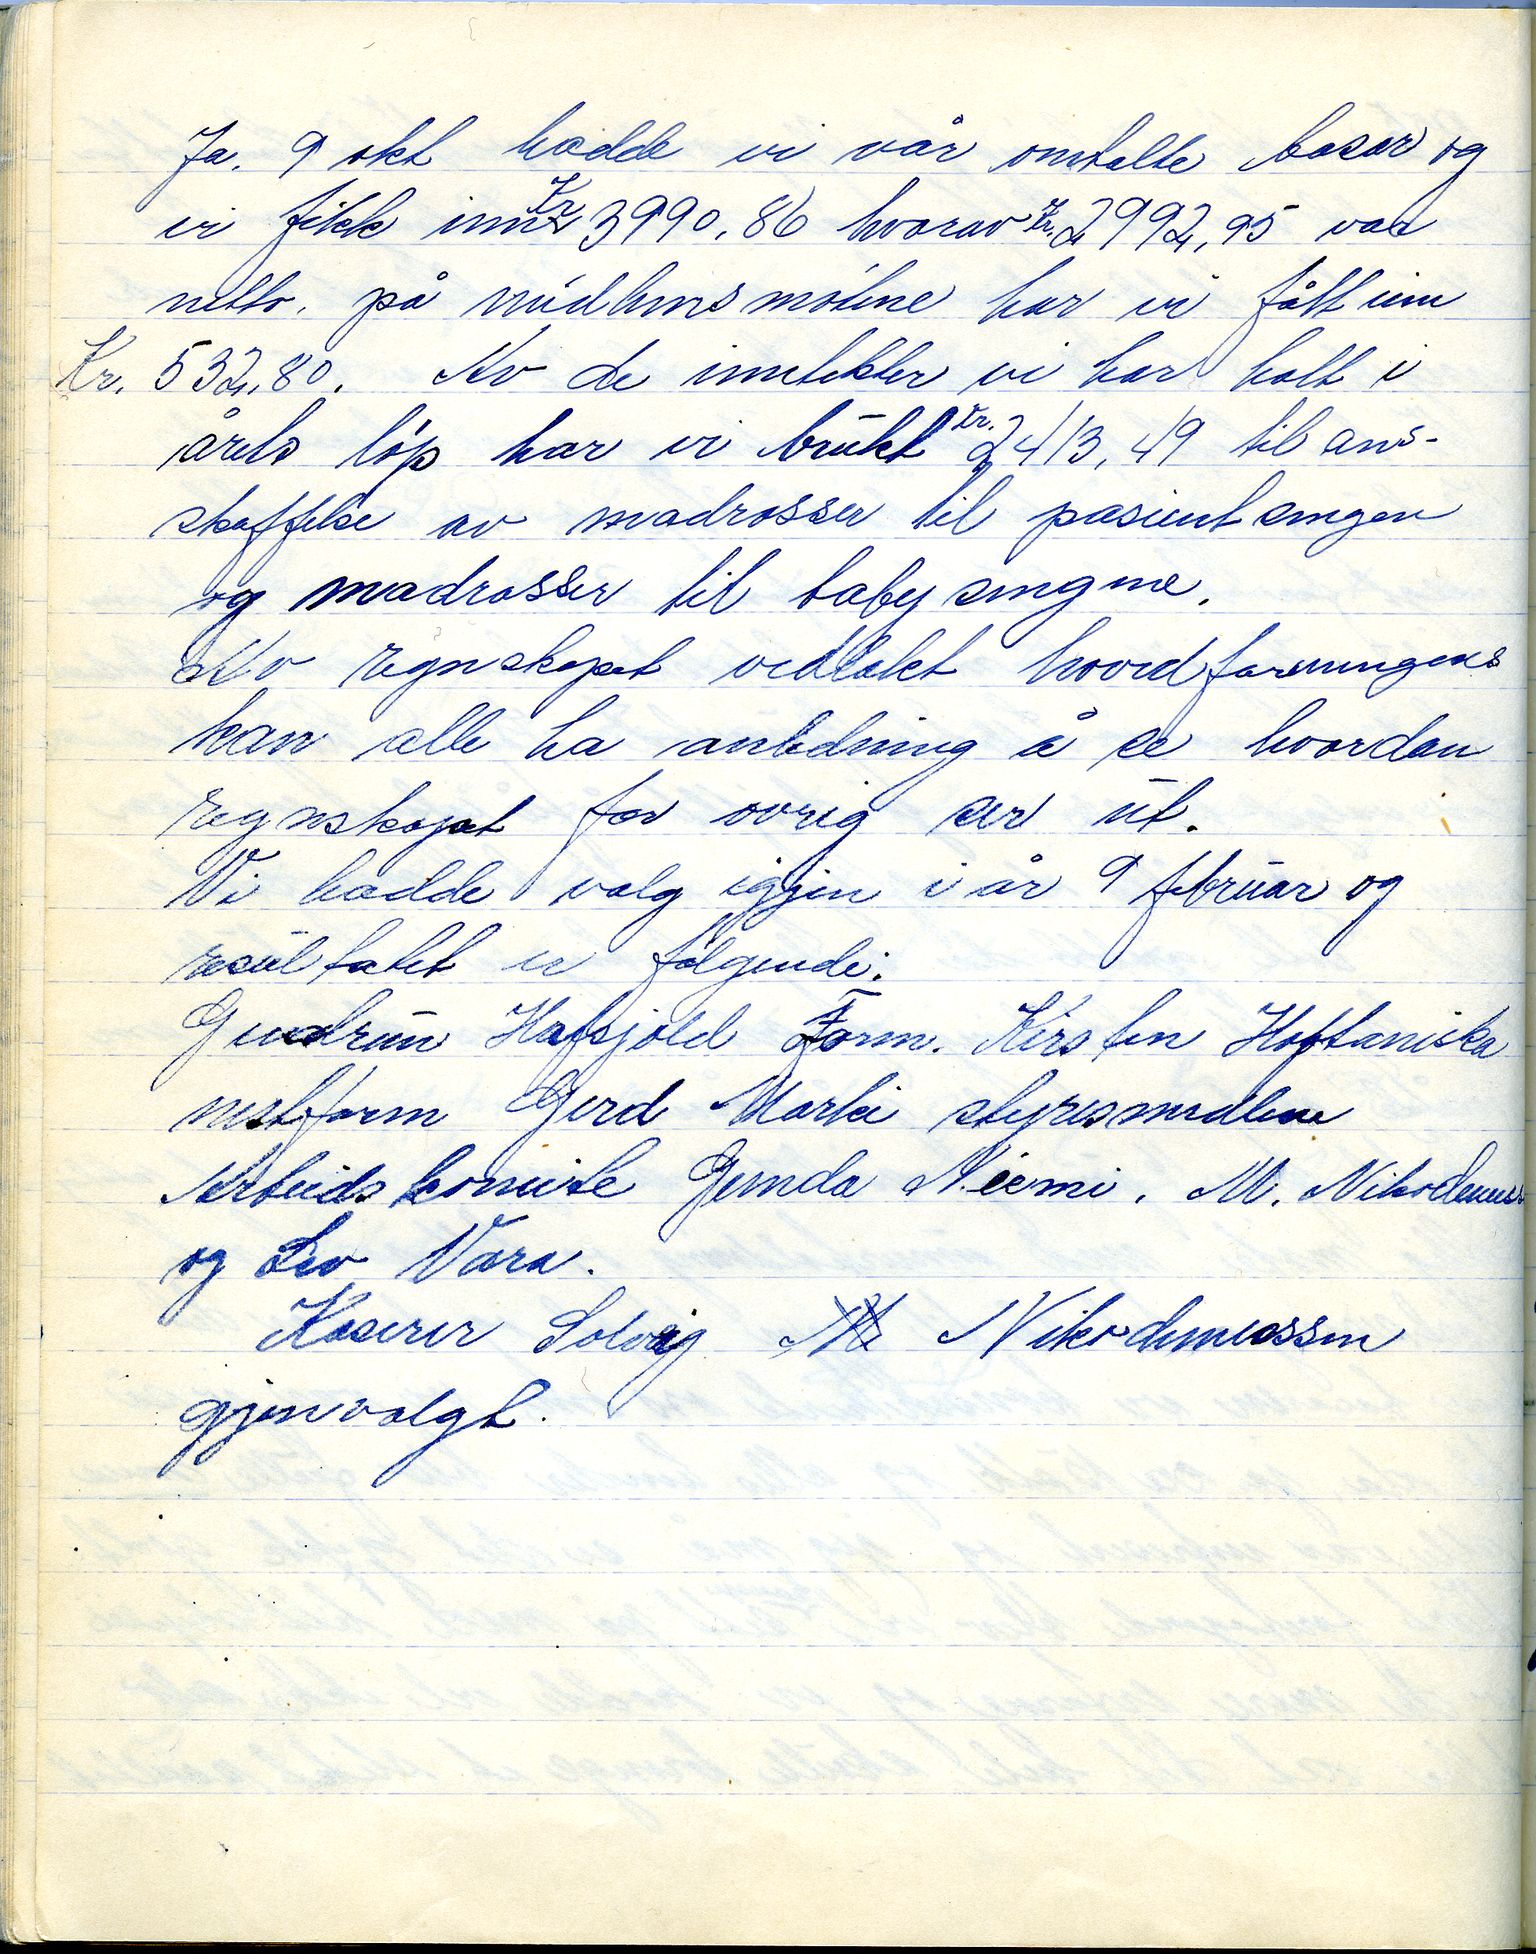 Ja. 9 okt hadde vi vår omtalte basar og
vi fikk inn Kr 3990,86 hvorav Kr. 2992,95 var
netto. på medlemsmötene har vi fått inn
Kr. 532,80. Av de inntekter vi har hatt i
årets löp har vi brukt kr. 2413,49 til ans-
skaffelse av madrasser til pasientsengen
og madrasser til babysengene.
Av regnskapet vedlakt hovedforeningens
kan alle ha anledning å se hvordan
regnskapet for ovrig ser ut.
Vi hadde valg igjen i år 9 februar og
resultatet er fölgende:
Gudrun Hafsjold Form. Kirsten Hottaniska
nestform Gerd Marki styresmedlem
Arbeidskomite Gunda Niemi. M. Nikodemus
og Liv Vara.
Kaserer Solveig Nikodemussen
gjenvalgt.